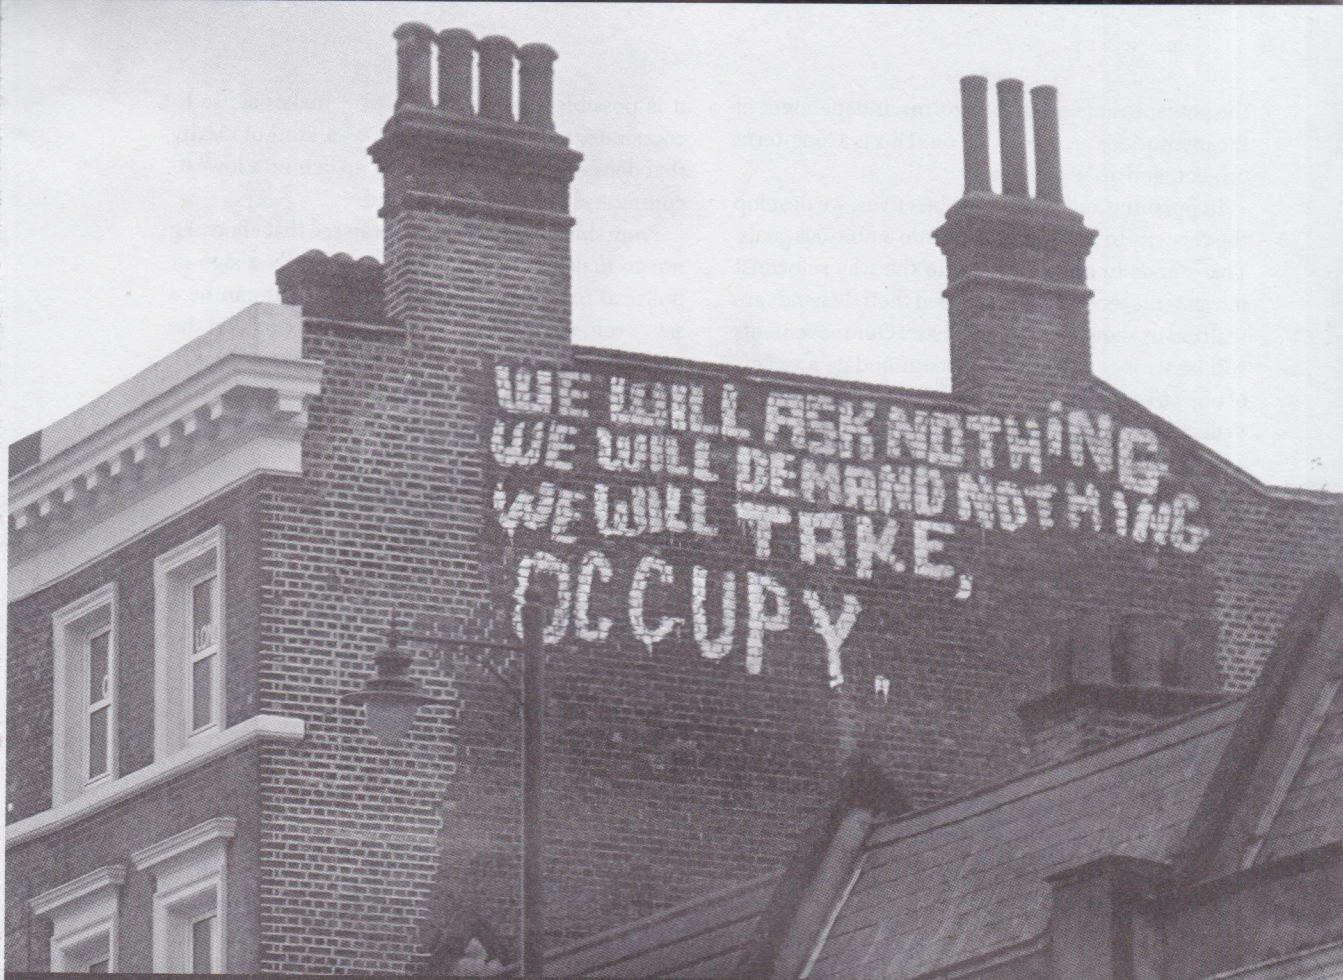 WE WILL ASK NOTHiNG
WE WILL DEMAND NOTHING
WE WILL TAKE,
OCCUPY.